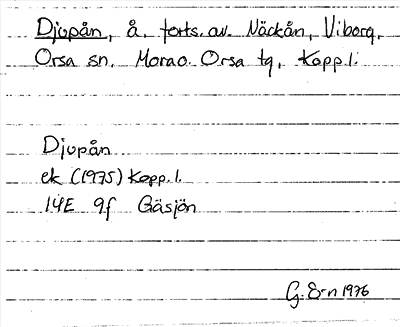 Djupån, å, forts. av. Näckån, Viborg,
Orsa sn. Mora o. Orsa tg, Kopp.l.
Djupån
ek (1975) Kopp.l.
14E 9f Gåsjön
G. E-n 1976